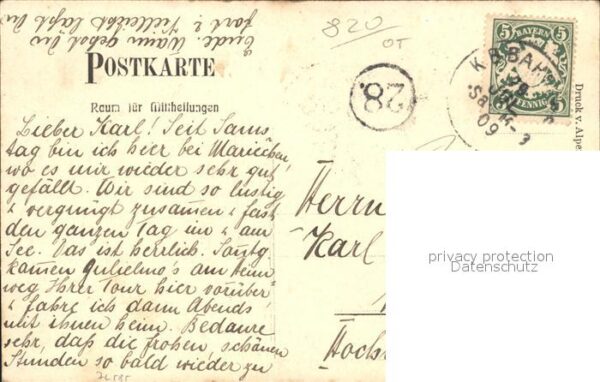 Ende. Wann gehst du
fort? Vielleicht laßt du
820
OT
POSTKARTE
Raum für Mittheilungen
28.
5 BAYERN 5
PFENNIG
K.B.BAHN
JUL
09
Druck v. Alpe
Lieber Karl! Seit Sams
tag bin ich hier bei Mariechen,
wo es mir wieder sehr gut
gefällt. Wir sind so lustig
& vergnügt zusammen & fast
den ganzen Tag im & am
See. Das ist herrlich. Sontg
kamen Gulielmo's am Heim
weg Ihrer Tour hier vorüber
& fahre ich dann Abends
mit ihnen heim. Bedaure
sehr, daß die frohen, schönen
Stunden so bald wieder zu
Herrn
Karl
Hochs
privacy protection
Datenschutz